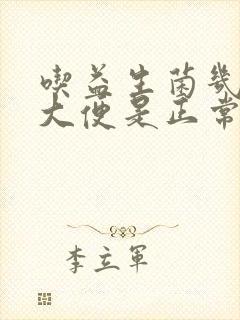 喫益生菌幾
大便是正常
李立軍